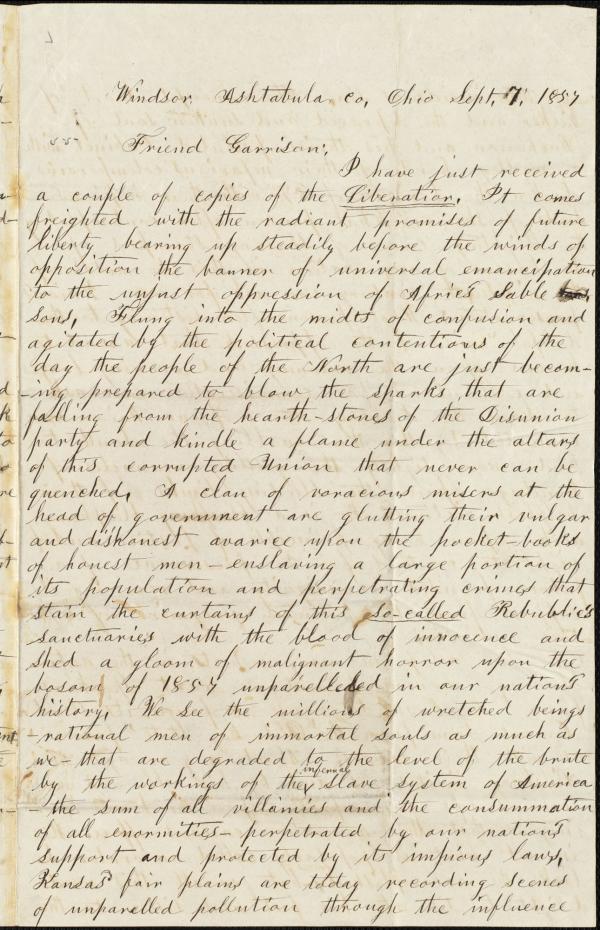 Windsor, Ashtabula co, Ohio Sept, 7, 1857
Friend Garrison;,
I have just received
a couple of copies of the Liberation. It comes
freighted with the radiant promises of future
liberty bearing up steadily before the winds of
opposition the banner of universal emancipation
to the unjust oppression of Afric's Sable
sons, Flung into the midts of confusion and
agitated by the political contentions of the
day the people of the North are just becom-
-ing prepared to blow the sparks that are
falling from the hearth-stones of the Disunion
party and kindle a flame under the altars
of this corrupted Union that never can be
quenched. A clan of voracious misers at the
head of government are glutting their vulgar
and dishonest avarice upon the pocket-books
of honest men-enslaving a large portion of
its population and perpetrating crimes that
stain the curtains of this so-called Rebublic's
sanctuaries with the blood of innocence and
shed a gloom of malignant horror upon the
bosom of 1857 unparelleded in our nation's
history. We see the millions of wretched beings
-rational men of immortal souls as much as
we-that are degraded to the level of the brute
by the workings of the infernal slave system of America
-the sum of all villamies and the consummation
of all enormities-perpetrated by our nation's
support and protected by its impious laws,
Kansas' fair plains are today recording scenes
of unparelled pollution through the influence